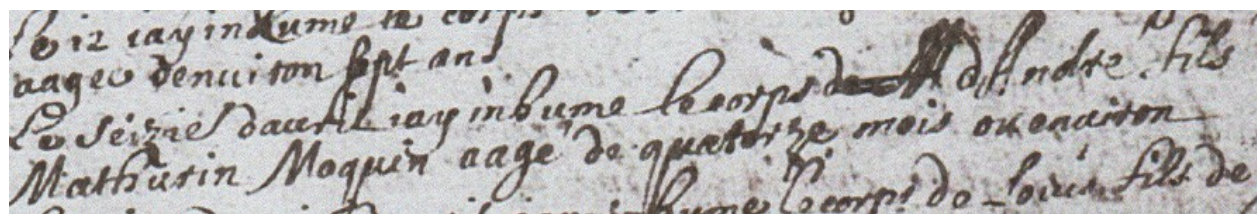 Le 12 iay inhumé le corps
aagee denuiron sept ans
Le seizie dauril iay inhumé le corps de dAndré fils
Mathurin Moquin aagé de quatorze mois ou enuiron
inhumé le corps de Louis fils de